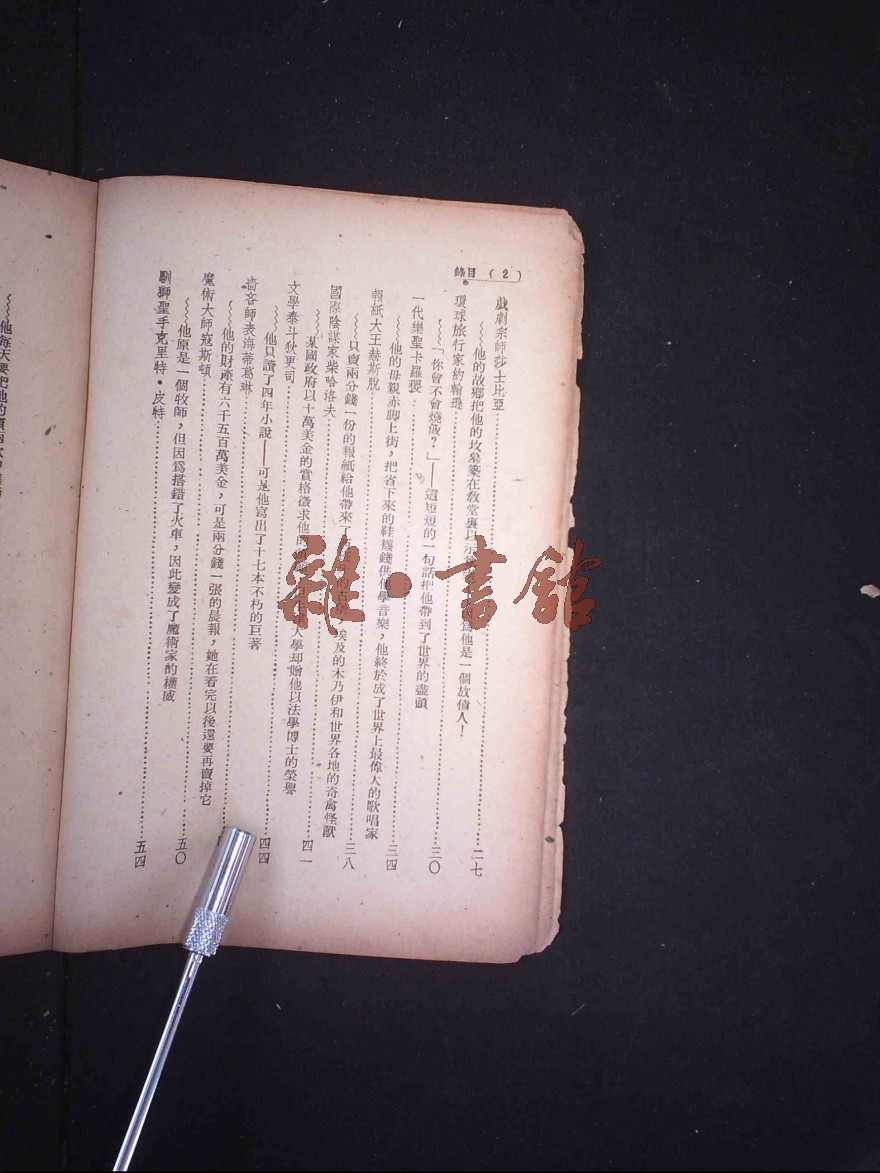 錄目 (2)
戲劇宗師莎士比亞……二七
他的故鄉把他的坟墓築在敎堂裏以示 爲他是一個放債人！
環球旅行家約翰遜……三〇
「你會不會燒飯？」——這短短的一句話把他帶到了世界的盡頭
一代樂聖卡羅素……三四
他的母親赤脚上街，把省下來的鞋襪錢供他學音樂，他終於成了世界上最偉大的歌唱家
報紙大王赫斯脫……三八
只賣兩分錢一份的報紙給他帶來了 的古堡，埃及的木乃伊和世界各地的奇禽怪獸
國際陰謀家柴哈洛夫……四一
某國政府以十萬美金的賞格徵求他的 大學却贈他以法學博士的榮譽
文學泰斗狄更司……四四
他只讀了四年小說——可是他寫出了十七本不朽的巨著
嗇吝師表海蒂葛琳……
他的財產有六千五百萬美金，可是兩分錢一張的晨報，她在看完以後還要再賣掉它
魔術大師寇斯頓……五〇
他原是一個牧師，但因爲搭錯了火車，因此變成了魔術家的權威
馴獅聖手克里特·皮特……五四
他每天要把他的頭
雜·書館